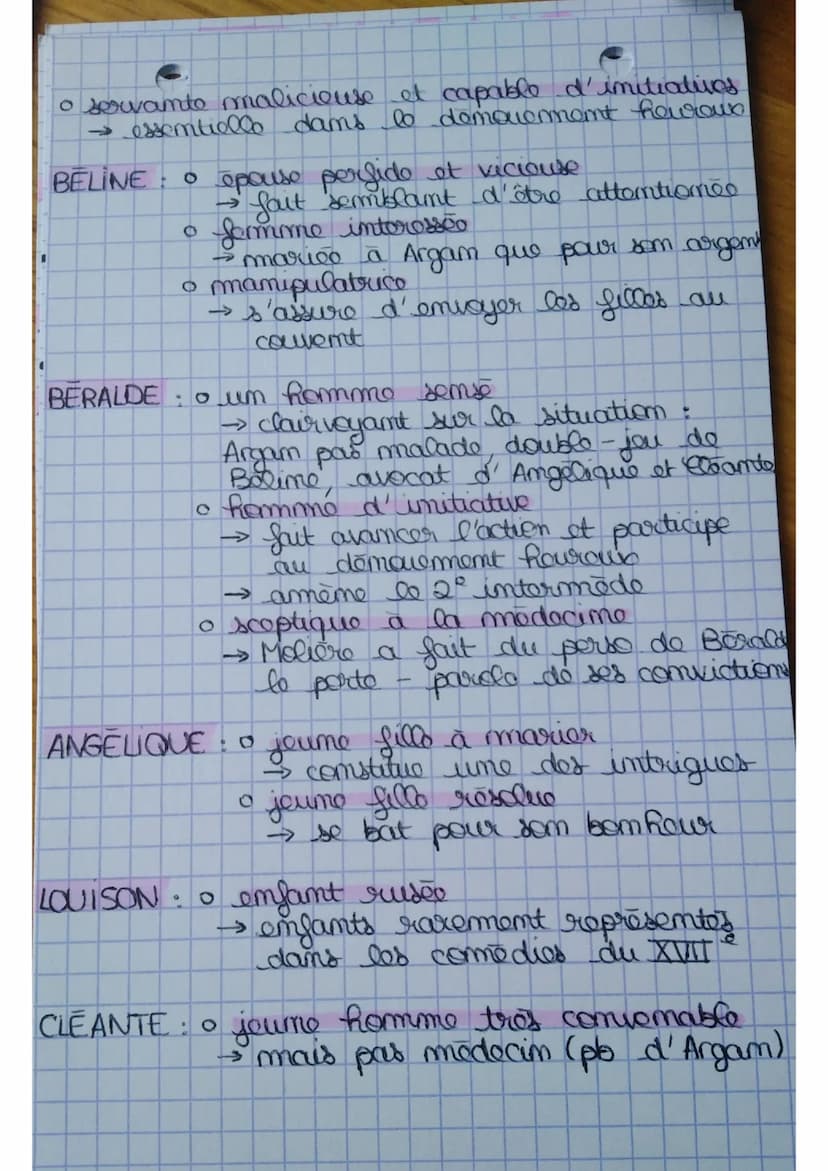 o servante malicieuse et capable d'initiatives
→ essentielle dans le dénouement heureux
BÉLINE : o épouse perfide et vicieuse
→ fait semblant d'être attentionnée
o femme intéressée
→ mariée à Argan que pour son argent
o manipulatrice
→ s'assure d'envoyer les filles au
couvent
BÉRALDE : o un homme sensé
→ clairvoyant sur la situation :
Argan pas malade, double-jeu de
Béline, avocat d'Angélique et Cléante
o homme d'initiative
→ fait avancer l'action et participe
au dénouement heureux
→ amène le 2e intermède
o sceptique à la médecine
→ Molière a fait du perso de Béralde
le porte-parole de ses convictions
ANGÉLIQUE : o jeune fille à marier
→ constitue une des intrigues
o jeune fille résolue
→ se bat pour son bonheur
LOUISON : o enfant rusée
→ enfants rarement représentés
dans les comédies du XVIIe
CLÉANTE : o jeune homme très convenable
→ mais pas médecin (pb d'Argan)